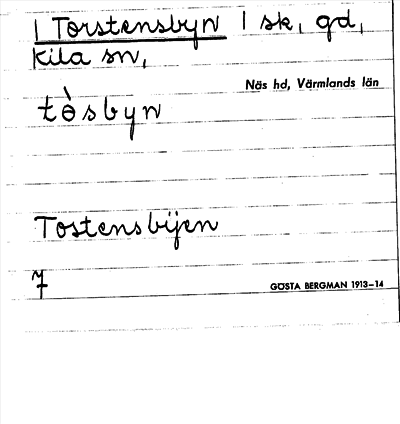 1 Torstensbyn 1 sk, gd,
Kila sn,
Näs hd, Värmlands län
tòsbyn
Tostensbÿen
7
GÖSTA BERGMAN 1913–14